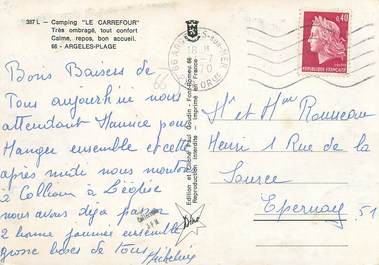 387 L - Camping "LE CARREFOUR"
Très ombragé, tout confort
Calme, repos, bon accueil.
66 - ARGELES-PLAGE
66
0,40
REPUBLIQUE FRANÇAISE
Bons Baisers de
Tous aujourd'hui nous
attendant Maurice pour
Manger ensemble et cette
après midi nous montons
a Collioure à l'église
nous avons déja passer
2 bonne journée ensemble
grosse bises de tous
Micheline
Edition et Cliché Paul Gaudin - Font-Romeu 66
Reproduction interdite - Imprimé en France
Dino
Mr et Mme Rousseau
Henri 1 Rue de la
Source
Epernay 51